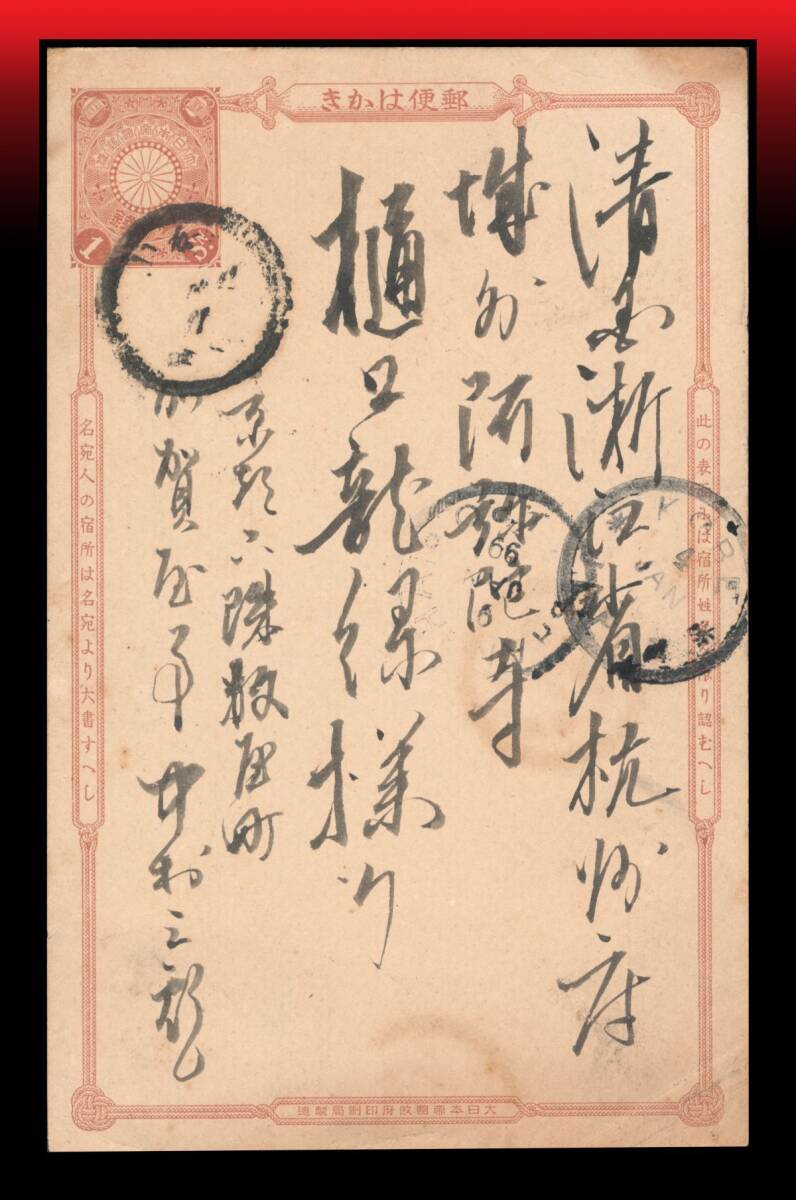 郵便はかき
大日本帝國郵便
1 Sn
此の表面には宿所姓名に限り認むへし
清國浙江省杭州府
城外阿弥陀寺
樋口龍縁様行
京都六條数屋町
加賀屋事中村三郎
名宛人の宿所は名宛より大書すへし
KOBE
JAN
大日本帝國政府印刷局製造